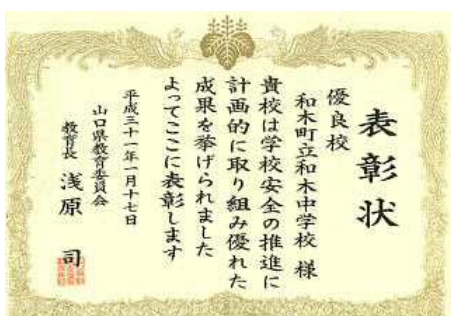 表彰状
優良校
和木町立和木中学校 様
貴校は学校安全の推進に
計画的に取り組み優れた
成果を挙げられました
よってここに表彰します
平成三十一年一月十七日
山口県教育委員会
教育長 浅原 司